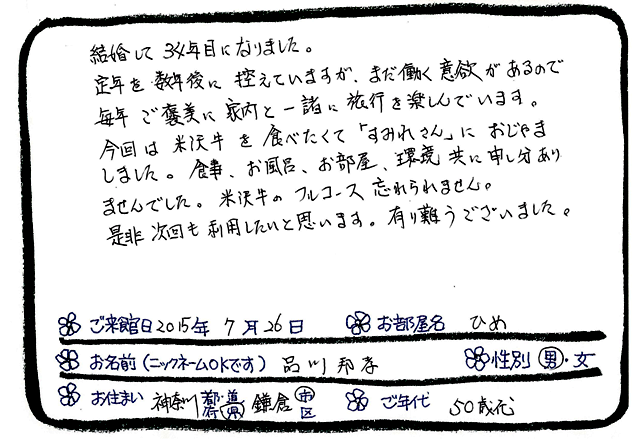 結婚して34年目になりました。
定年を数年後に控えていますが、まだ働く意欲があるので
毎年ご褒美に家内と一諸に旅行を楽しんでいます。
今回は米沢牛を食べたくて「すみれさん」におじゃま
しました。食事、お風呂、お部屋、環境共に申し分あり
ませんでした。米沢牛のフルコース忘れられません。
是非次回も利用したいと思います。有り難うございました。
ご来館日2015年 7月26日 お部屋名 ひめ
お名前(ニックネームOKです) 品川邦孝 性別 男・女
お住まい 神奈川 都・道・府・県 鎌倉 市・区 ご年代 50歳代